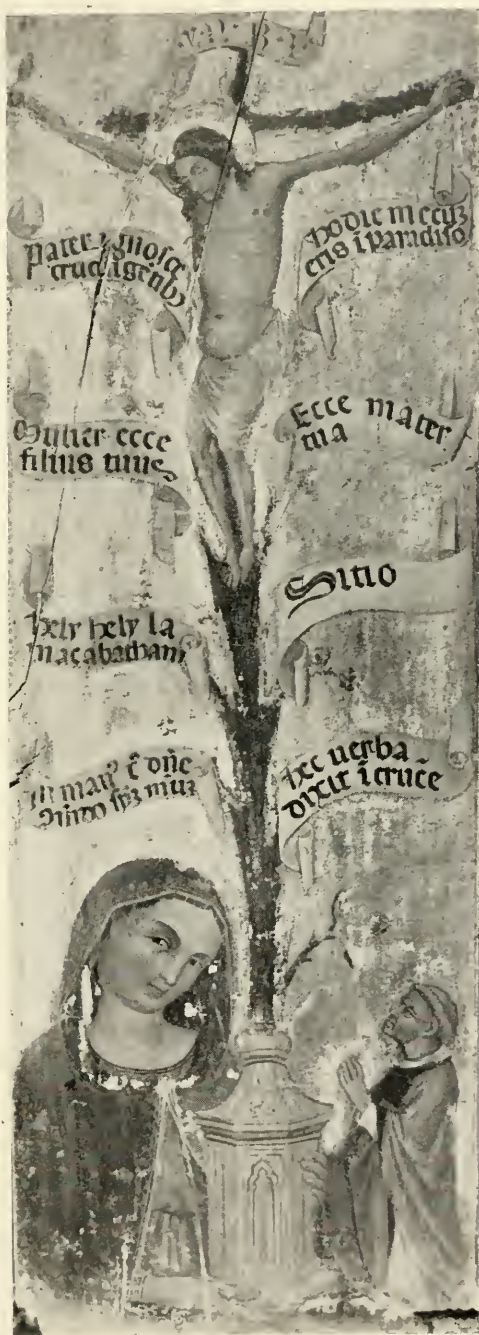 pater ignosce
cruc igentibȝ
hodie mecuȝ
eris i paradiso
Mulier ecce
filius tuus
Ecce mater
tua
hely hely la
maçabathani
Sitio
In man⁹ t̄ dñe
spȝ
hec uerba
dixit i cruce